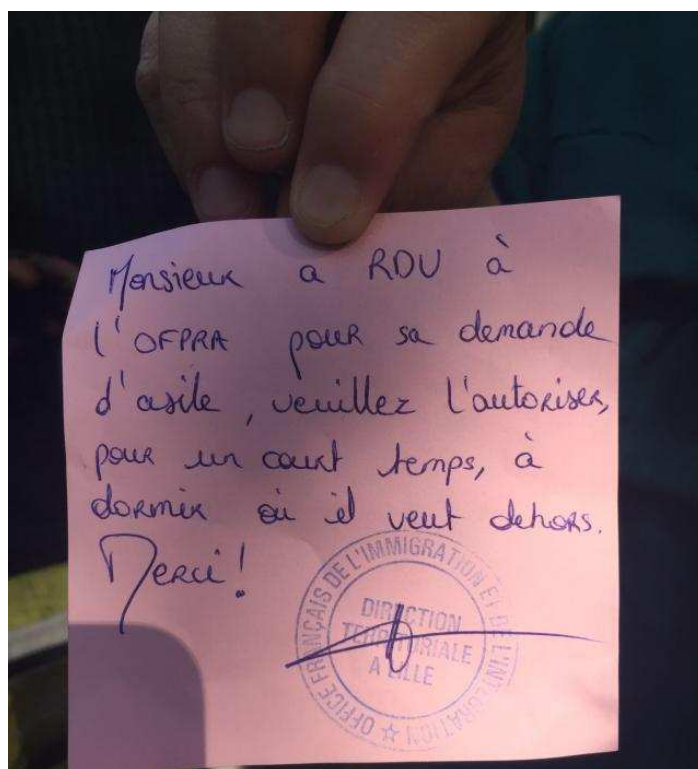 Monsieur a RDV à
l'OFPRA pour sa demande
d'asile, veuillez l'autoriser,
pour un court temps, à
dormir où il veut dehors.
Merci!
OFFICE FRANÇAIS DE L'IMMIGRATION ET DE L'INTEGRATION
DIRECTION
TERRITORIALE
A LILLE